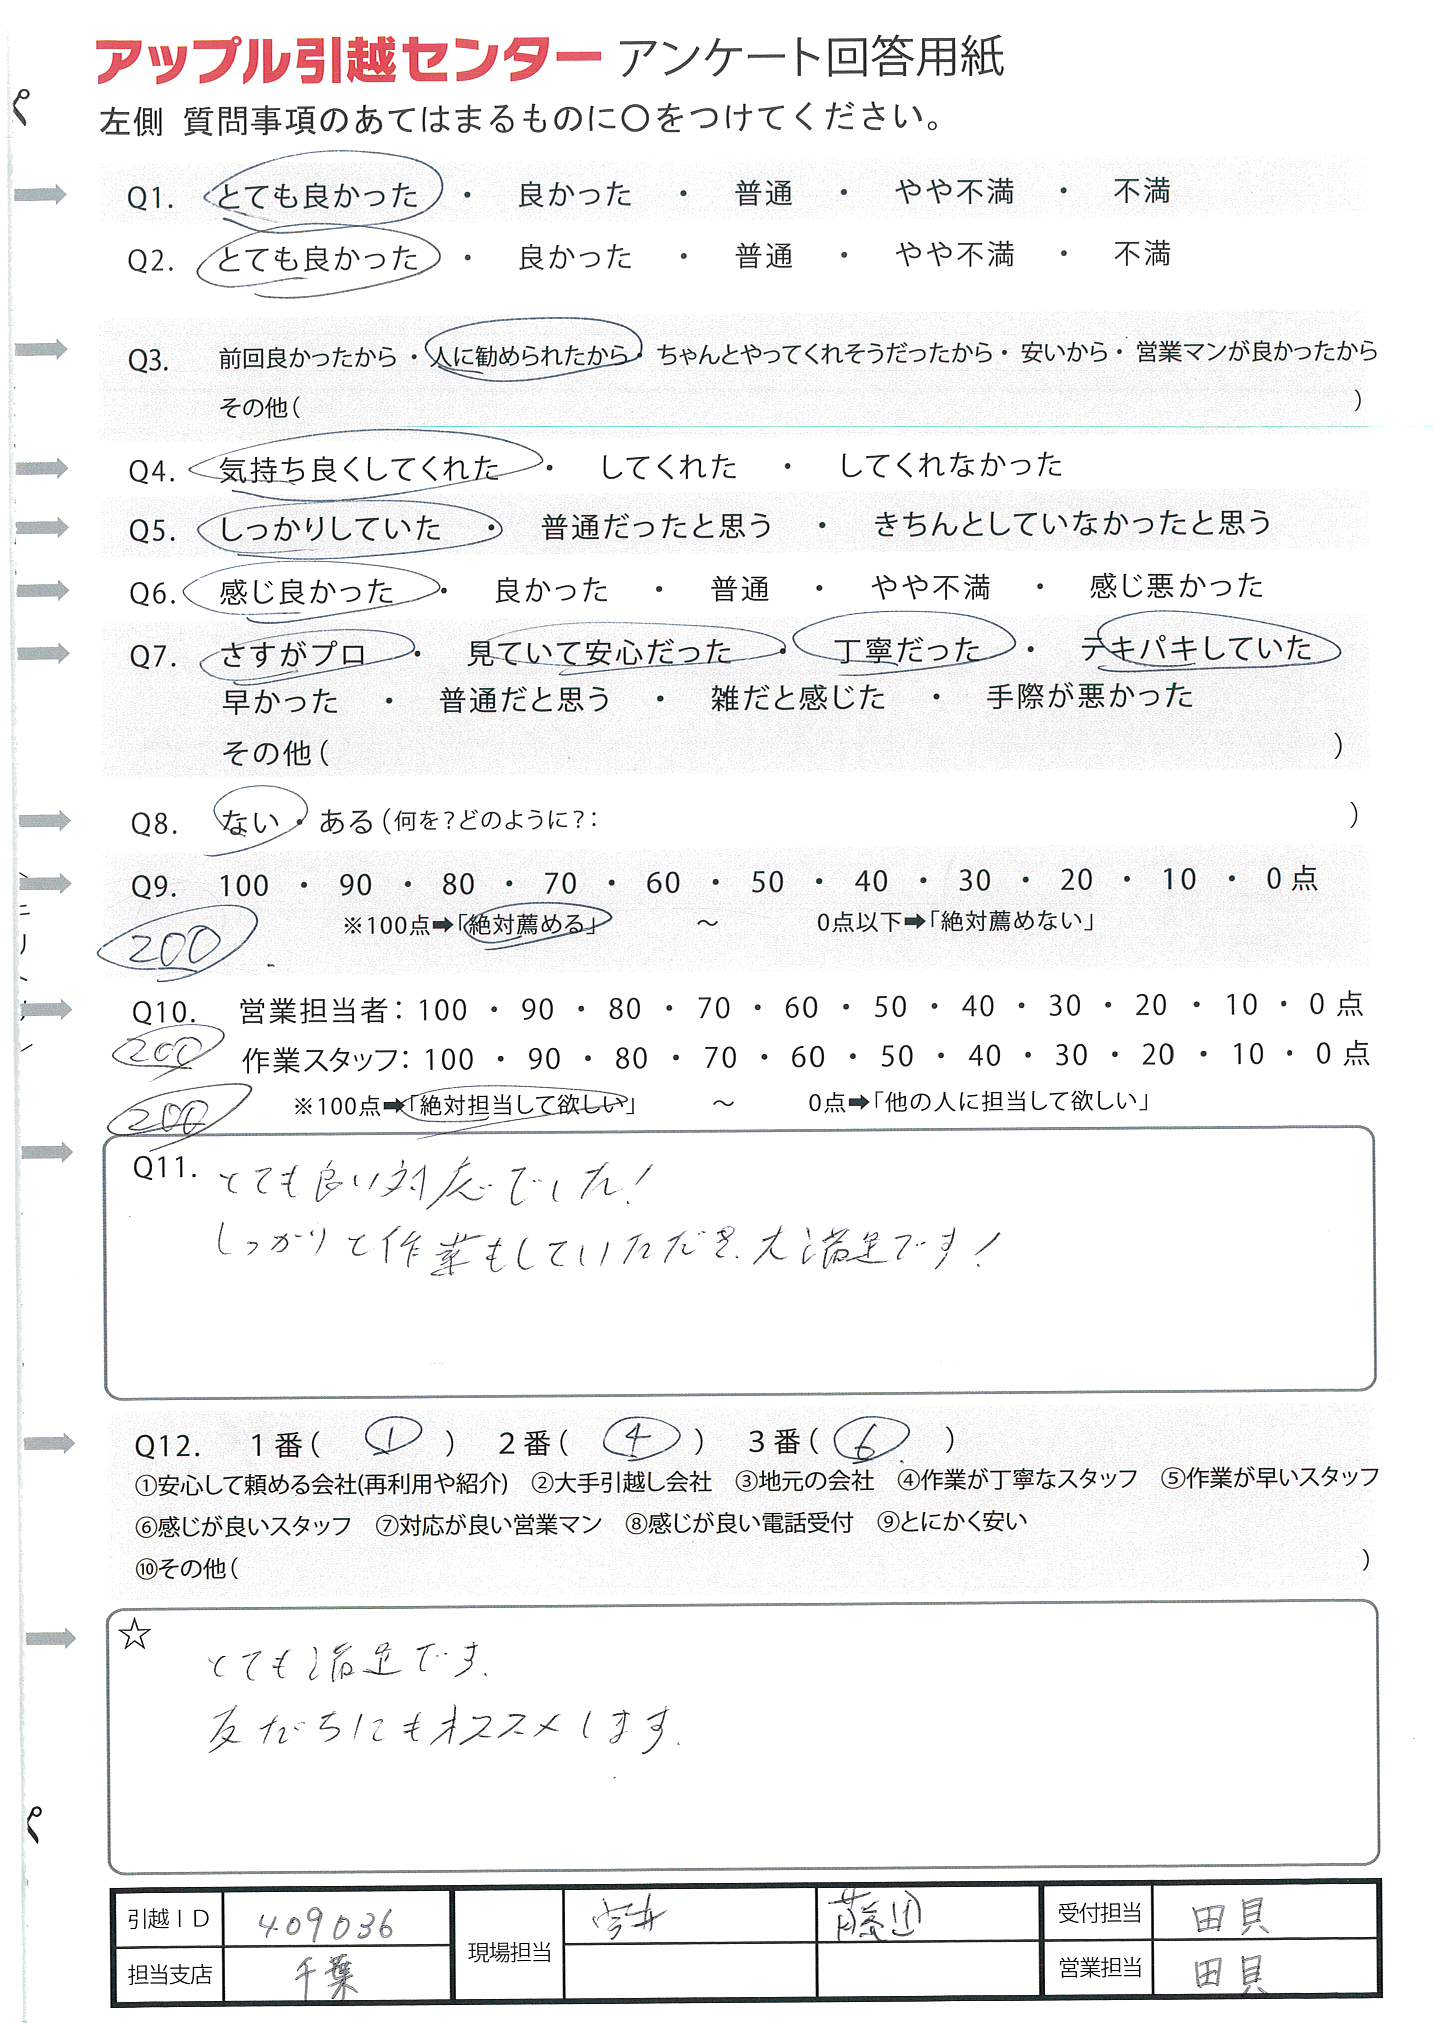 アップル引越センター アンケート回答用紙
左側 質問事項のあてはまるものに〇をつけてください。
Q1. とても良かった ・ 良かった ・ 普通 ・ やや不満 ・ 不満
Q2. とても良かった ・ 良かった ・ 普通 ・ やや不満 ・ 不満
Q3. 前回良かったから ・ 人に勧められたから ・ ちゃんとやってくれそうだったから ・ 安いから ・ 営業マンが良かったから
その他( )
Q4. 気持ち良くしてくれた ・ してくれた ・ してくれなかった
Q5. しっかりしていた ・ 普通だったと思う ・ きちんとしていなかったと思う
Q6. 感じ良かった ・ 良かった ・ 普通 ・ やや不満 ・ 感じ悪かった
Q7. さすがプロ ・ 見ていて安心だった ・ 丁寧だった ・ テキパキしていた
早かった ・ 普通だと思う ・ 雑だと感じた ・ 手際が悪かった
その他( )
Q8. ない ・ ある(何を?どのように?: )
Q9. 100 ・ 90 ・ 80 ・ 70 ・ 60 ・ 50 ・ 40 ・ 30 ・ 20 ・ 10 ・ 0 点
200 ※100点➡「絶対薦める」 ～ 0点以下➡「絶対薦めない」
Q10. 営業担当者: 100 ・ 90 ・ 80 ・ 70 ・ 60 ・ 50 ・ 40 ・ 30 ・ 20 ・ 10 ・ 0 点
200 作業スタッフ: 100 ・ 90 ・ 80 ・ 70 ・ 60 ・ 50 ・ 40 ・ 30 ・ 20 ・ 10 ・ 0 点
200 ※100点➡「絶対担当して欲しい」 ～ 0点➡「他の人に担当して欲しい」
Q11. とても良い対応でした!
しっかりと作業もしていただき、大満足です!
Q12. 1番( 1 ) 2番( 4 ) 3番( 6 )
①安心して頼める会社(再利用や紹介) ②大手引越し会社 ③地元の会社 ④作業が丁寧なスタッフ ⑤作業が早いスタッフ
⑥感じが良いスタッフ ⑦対応が良い営業マン ⑧感じが良い電話受付 ⑨とにかく安い
⑩その他( )
☆ とても満足です。
友だちにもオススメします。
引越ID 409036 現場担当 藤田 受付担当 田貝
担当支店 千葉 営業担当 田貝